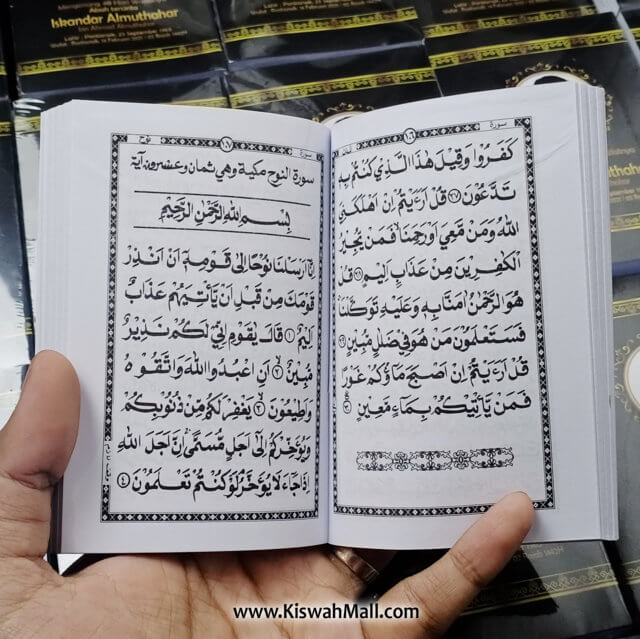 Iskandar Almuthahar
سورة ١٦
كَفَرُوا وَقِيلَ هٰذَا الَّذِي كُنْتُمْ بِهِ
تَدَّعُونَ ﴿٢٧﴾ قُلْ اَرَءَيْتُمْ اِنْ اَهْلَكَنِيَ
اللّٰهُ وَمَنْ مَعِيَ اَوْ رَحِمَنَا فَمَنْ يُجِيرُ
الْكٰفِرِينَ مِنْ عَذَابٍ اَلِيمٍ ﴿٢٨﴾ قُلْ
هُوَ الرَّحْمٰنُ اٰمَنَّا بِهِ وَعَلَيْهِ تَوَكَّلْنَا
فَسَتَعْلَمُونَ مَنْ هُوَ فِي ضَلٰلٍ مُبِينٍ ﴿٢٩﴾
قُلْ اَرَءَيْتُمْ اِنْ اَصْبَحَ مَاؤُكُمْ غَوْرًا
فَمَنْ يَأْتِيكُمْ بِمَاءٍ مَعِينٍ ﴿٣٠﴾
سورة ١٧ نوح
سورة النوح مكية وهي ثمان وعشرون آية
بِسْمِ اللّٰهِ الرَّحْمٰنِ الرَّحِيْمِ
اِنَّا اَرْسَلْنَا نُوْحًا اِلٰى قَوْمِهِ اَنْ اَنْذِرْ
قَوْمَكَ مِنْ قَبْلِ اَنْ يَأْتِيَهُمْ عَذَابٌ
اَلِيمٌ ﴿١﴾ قَالَ يٰقَوْمِ اِنِّي لَكُمْ نَذِيرٌ
مُبِينٌ ﴿٢﴾ اَنِ اعْبُدُوا اللّٰهَ وَاتَّقُوهُ
وَاَطِيعُونِ ﴿٣﴾ يَغْفِرْ لَكُمْ مِنْ ذُنُوبِكُمْ
وَيُؤَخِّرْكُمْ اِلٰى اَجَلٍ مُسَمًّى اِنَّ اَجَلَ اللّٰهِ
اِذَا جَاءَ لَا يُؤَخَّرُ لَوْ كُنْتُمْ تَعْلَمُونَ ﴿٤﴾
www.KiswahMall.com